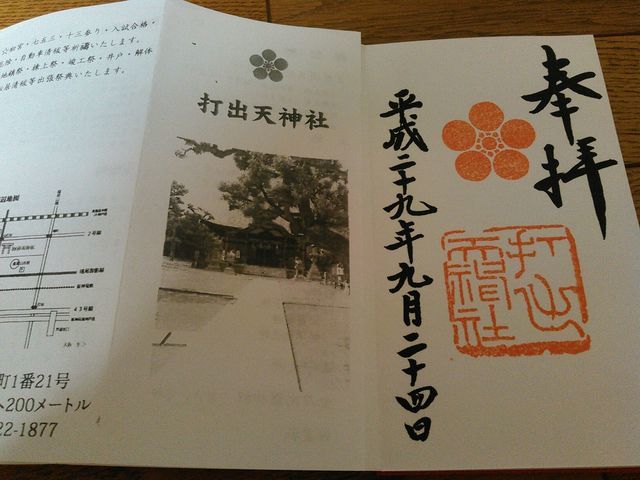 ・七五三・十三参り・入試合格・
・自動車清祓等祈祷いたします。
地鎮祭・棟上祭・竣工祭・井戸・解体
清祓等出張祭典いたします。
2号線
43号線
町1番21号
200メートル
22-1877
打出天神社
奉拝
打出
天神社
平成二十九年九月二十四日